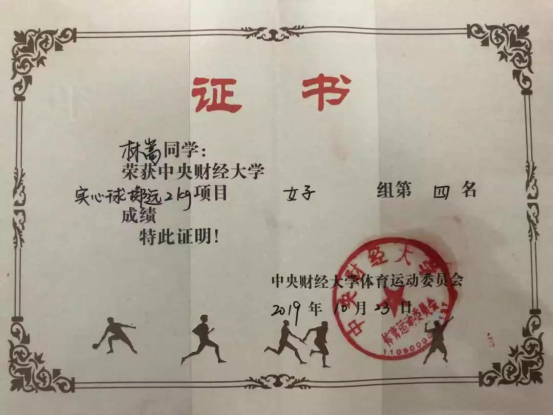 证 书
林嵩同学：
荣获中央财经大学
实心球掷远2kg项目 女子 组第 四 名
成绩
特此证明！
中央财经大学体育运动委员会
2019 年 10 月 23 日
中央财经大学
体育运动委员会